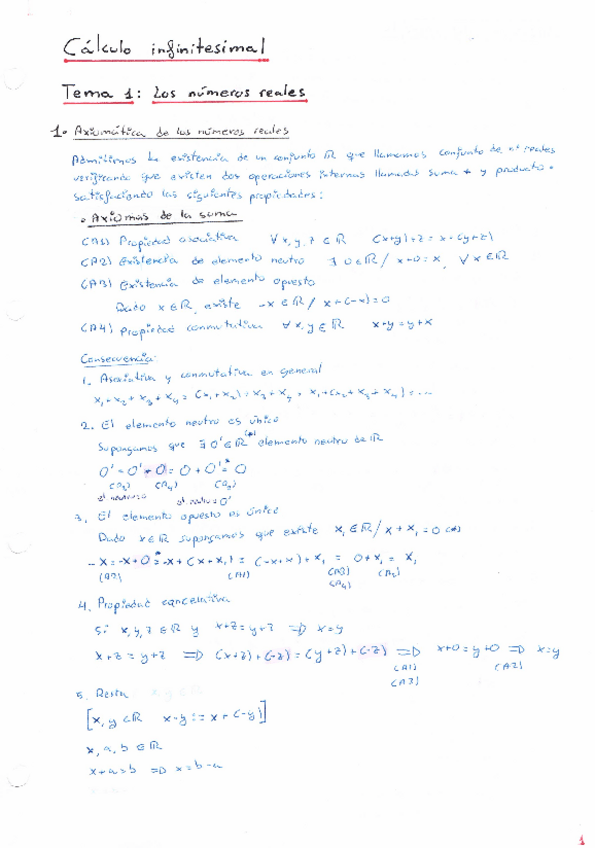 Cálculo infinitesimal
Tema 1: Los números reales
1. Axiomática de los números reales
Admitimos la existencia de un conjunto ℝ que llamamos conjunto de nº reales
verificando que existen dos operaciones internas llamadas suma + y producto ·
satisfaciendo las siguientes propiedades:
• Axiomas de la suma
(A1) Propiedad asociativa ∀x,y,z ∈ ℝ (x+y)+z = x+(y+z)
(A2) Existencia de elemento neutro ∃ 0 ∈ ℝ / x+0=x, ∀x ∈ ℝ
(A3) Existencia de elemento opuesto
Dado x ∈ ℝ, existe -x ∈ ℝ / x+(-x)=0
(A4) Propiedad conmutativa ∀x,y ∈ ℝ x+y = y+x
Consecuencia:
1. Asociativa y conmutativa en general
x₁+x₂+x₃+x₄ = (x₁+x₂)+x₃+x₄ = x₁+(x₂+x₃+x₄) = ...
2. El elemento neutro es único
Supongamos que ∃ 0' ∈ ℝ (*) elemento neutro de ℝ
0' = 0'+0 = 0+0' =* 0
(A2) (A4) (A2)
el neutro=0 el neutro=0'
3. El elemento opuesto es único
Dado x ∈ ℝ supongamos que existe x₁ ∈ ℝ / x+x₁=0 (*)
-x = -x+0 =* -x+(x+x₁) = (-x+x)+x₁ = 0+x₁ = x₁
(A2) (A1) (A3) (A2)
(A4)
4. Propiedad cancelativa
Si x,y,z ∈ ℝ y x+z=y+z ⇒ x=y
x+z = y+z ⇒ (x+z)+(-z) = (y+z)+(-z) ⇒ x+0=y+0 ⇒ x=y
(A1) (A2)
(A3)
5. Resta
[x,y ∈ ℝ x-y := x+(-y)]
x,a,b ∈ ℝ
x+a=b ⇒ x=b-a
1